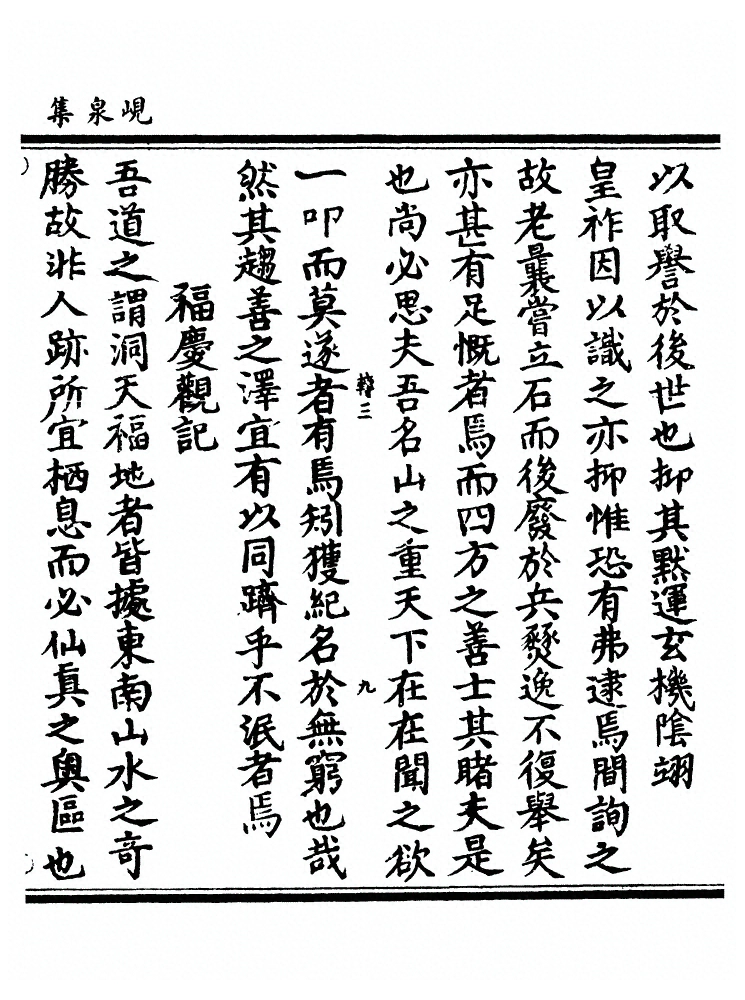 峴泉集
以取譽於後世也抑其默運玄機陰翊
皇祚因以識之亦抑惟恐有弗逮焉間詢之
故老曩嘗立石而後廢於兵燹逸不復舉矣
亦甚有足慨者焉而四方之善士其睹夫是
也尚必思夫吾名山之重天下在在聞之欲
𫐐三
九
一叩而莫遂者有焉矧獲紀名於無窮也哉
然其趨善之澤宜有以同躋乎不泯者焉
福慶觀記
吾道之謂洞天福地者皆據東南山水之竒
勝故非人跡所宜栖息而必仙真之奧區也